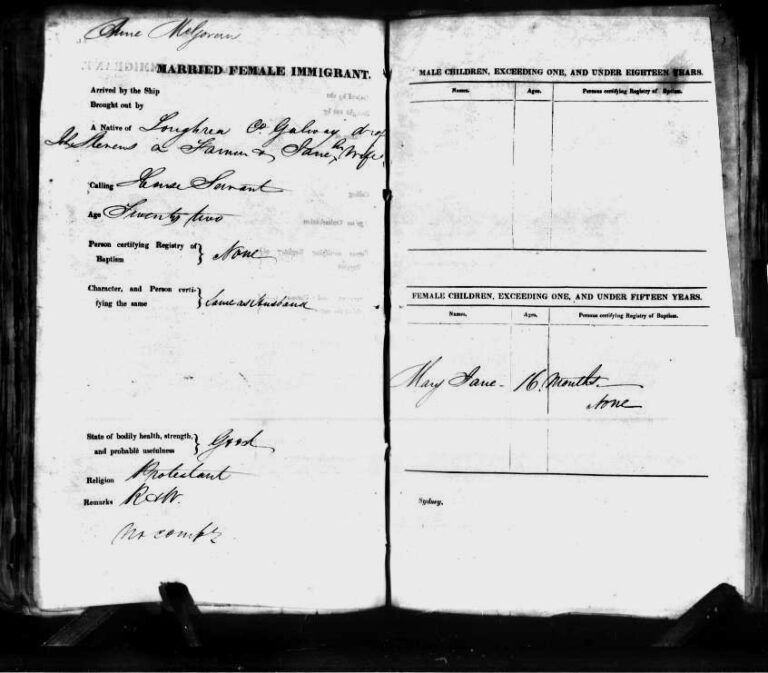 Anne McGovern
MARRIED FEMALE IMMIGRANT.
Arrived by the Ship
Brought out by
A Native of Loughrea Co Galway d. of
Jno Stevens a Farmer & Jane his Wife
Calling House Servant
Age Twenty two
Person certifying Registry of Baptism } None
Character, and Person certifying the same } Same as Husband
State of bodily health, strength, and probable usefulness } Good
Religion Protestant
Remarks R & W.
No compts
MALE CHILDREN, EXCEEDING ONE, AND UNDER EIGHTEEN YEARS.
Names. Ages. Persons certifying Registry of Baptism.
FEMALE CHILDREN, EXCEEDING ONE, AND UNDER FIFTEEN YEARS.
Names. Ages. Persons certifying Registry of Baptism.
Mary Jane - 16 Months.
None
Sydney,